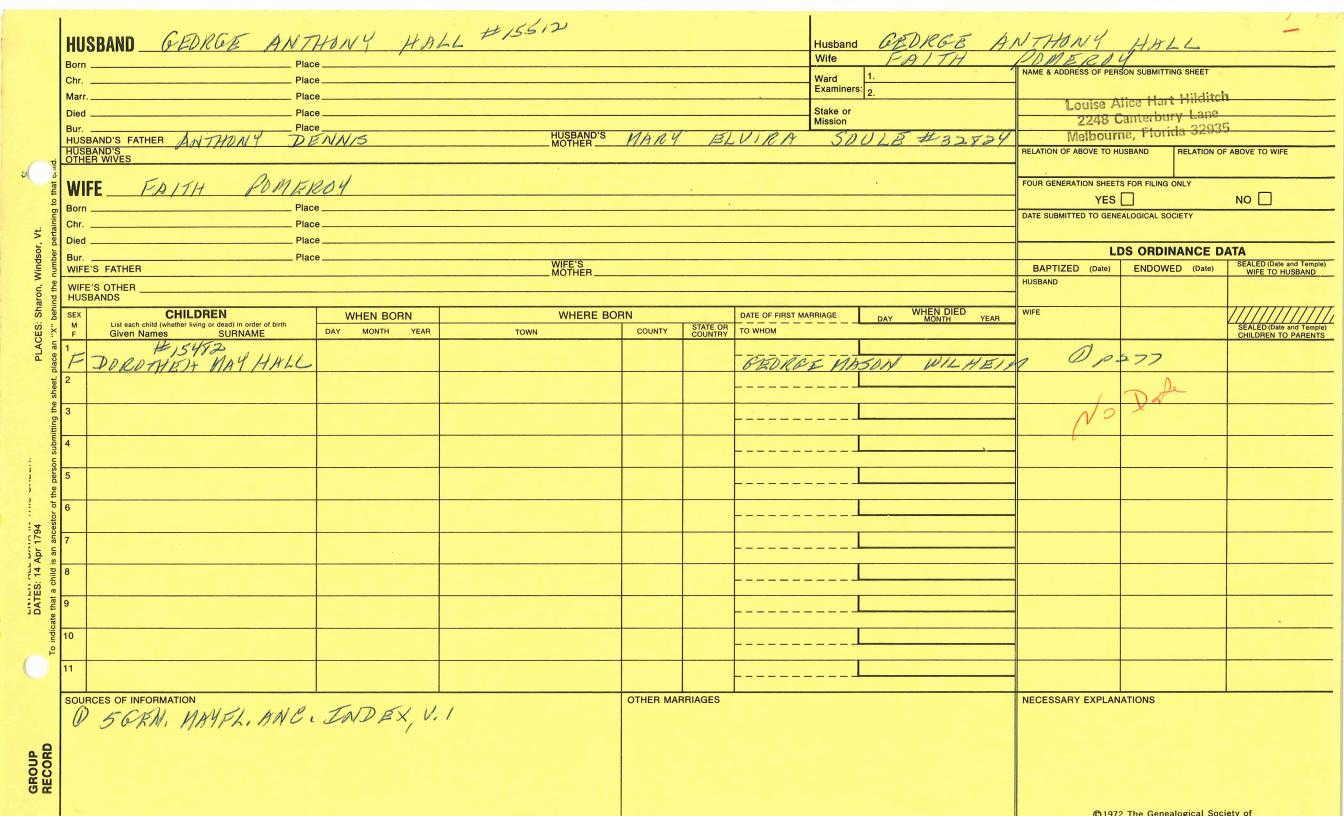 HUSBAND GEORGE ANTHONY HALL #15512
Born Place
Chr. Place
Marr. Place
Died Place
Bur. Place
HUSBAND'S FATHER ANTHONY DENNIS HUSBAND'S MOTHER MARY ELVIRA SOULE #32824
HUSBAND'S OTHER WIVES
Husband GEORGE ANTHONY HALL
Wife FAITH POMEROY
Ward Examiners: 1.
2.
Stake or Mission
NAME & ADDRESS OF PERSON SUBMITTING SHEET
Louise Alice Hart Hilditch
2248 Canterbury Lane
Melbourne, Florida 32935
RELATION OF ABOVE TO HUSBAND RELATION OF ABOVE TO WIFE
FOUR GENERATION SHEETS FOR FILING ONLY
YES NO
DATE SUBMITTED TO GENEALOGICAL SOCIETY
WIFE FAITH POMEROY
Born Place
Chr. Place
Died Place
Bur. Place
WIFE'S FATHER WIFE'S MOTHER
WIFE'S OTHER HUSBANDS
LDS ORDINANCE DATA
BAPTIZED (Date) ENDOWED (Date) SEALED (Date and Temple) WIFE TO HUSBAND
HUSBAND
WIFE
SEALED (Date and Temple) CHILDREN TO PARENTS
SEX M F
CHILDREN
List each child (whether living or dead) in order of birth
Given Names SURNAME
WHEN BORN
DAY MONTH YEAR
WHERE BORN
TOWN COUNTY STATE OR COUNTRY
DATE OF FIRST MARRIAGE
TO WHOM
WHEN DIED
DAY MONTH YEAR
1 #15482
F DOROTHEA MAY HALL GEORGE MASON WILHEIM ① p277
2
No Date
3
4
5
6
7
8
9
10
11
SOURCES OF INFORMATION
① 5 GEN. MAYFL. ANC. INDEX, V. 1
OTHER MARRIAGES
NECESSARY EXPLANATIONS
©1972 The Genealogical Society of
PLACES: Sharon, Windsor, Vt.
DATES: 14 Apr 1794
To indicate that a child is an ancestor of the person submitting the sheet, place an "X" behind the number pertaining to that
GROUP RECORD